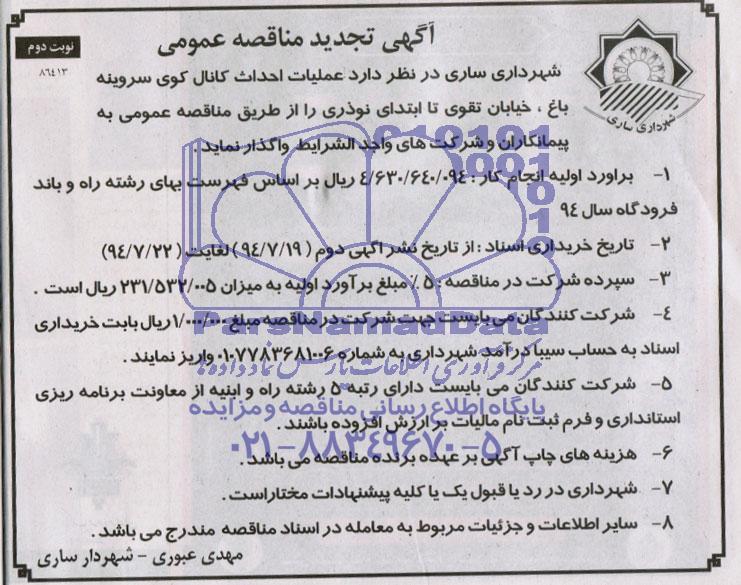 آگهی تجدید مناقصه عمومی
نوبت دوم
۸۶۴۱۳
شهرداری ساری
شهرداری ساری در نظر دارد عملیات احداث کانال کوی سروینه
باغ ، خیابان تقوی تا ابتدای نوذری را از طریق مناقصه عمومی به
پیمانکاران و شرکت های واجد الشرایط واگذار نماید.
۱- براورد اولیه انجام کار : ۴/۶۳۰/۶۴۰/۰۹۴ ریال بر اساس فهرست بهای رشته راه و باند
فرودگاه سال ۹۴
۲- تاریخ خریداری اسناد : از تاریخ نشر آگهی دوم ( ۹۴/۷/۱۹ ) لغایت ( ۹۴/۷/۲۲)
۳- سپرده شرکت در مناقصه : ۵ ٪ مبلغ برآورد اولیه به میزان ۲۳۱/۵۳۲/۰۰۵ ریال است .
۴- شرکت کنندگان می بایست جهت شرکت در مناقصه مبلغ ۱/۰۰۰/۰۰۰ ریال بابت خریداری
اسناد به حساب سیبا درآمد شهرداری به شماره ۰۱۰۷۷۸۳۶۸۱۰۰۶ واریز نمایند .
۵- شرکت کنندگان می بایست دارای رتبه ۵ رشته راه و ابنیه از معاونت برنامه ریزی
استانداری و فرم ثبت نام مالیات بر ارزش افزوده باشند .
۶- هزینه های چاپ آگهی بر عهده برنده مناقصه می باشد .
۷- شهرداری در رد یا قبول یک یا کلیه پیشنهادات مختار است .
۸- سایر اطلاعات و جزئیات مربوط به معامله در اسناد مناقصه مندرج می باشد .
مهدی عبوری - شهردار ساری
ParsNamadData
مرکز فرآوری اطلاعات پارس نماد داده ها
پایگاه اطلاع رسانی مناقصه و مزایده
۰۲۱-۸۸۳۴۹۶۷۰-۵